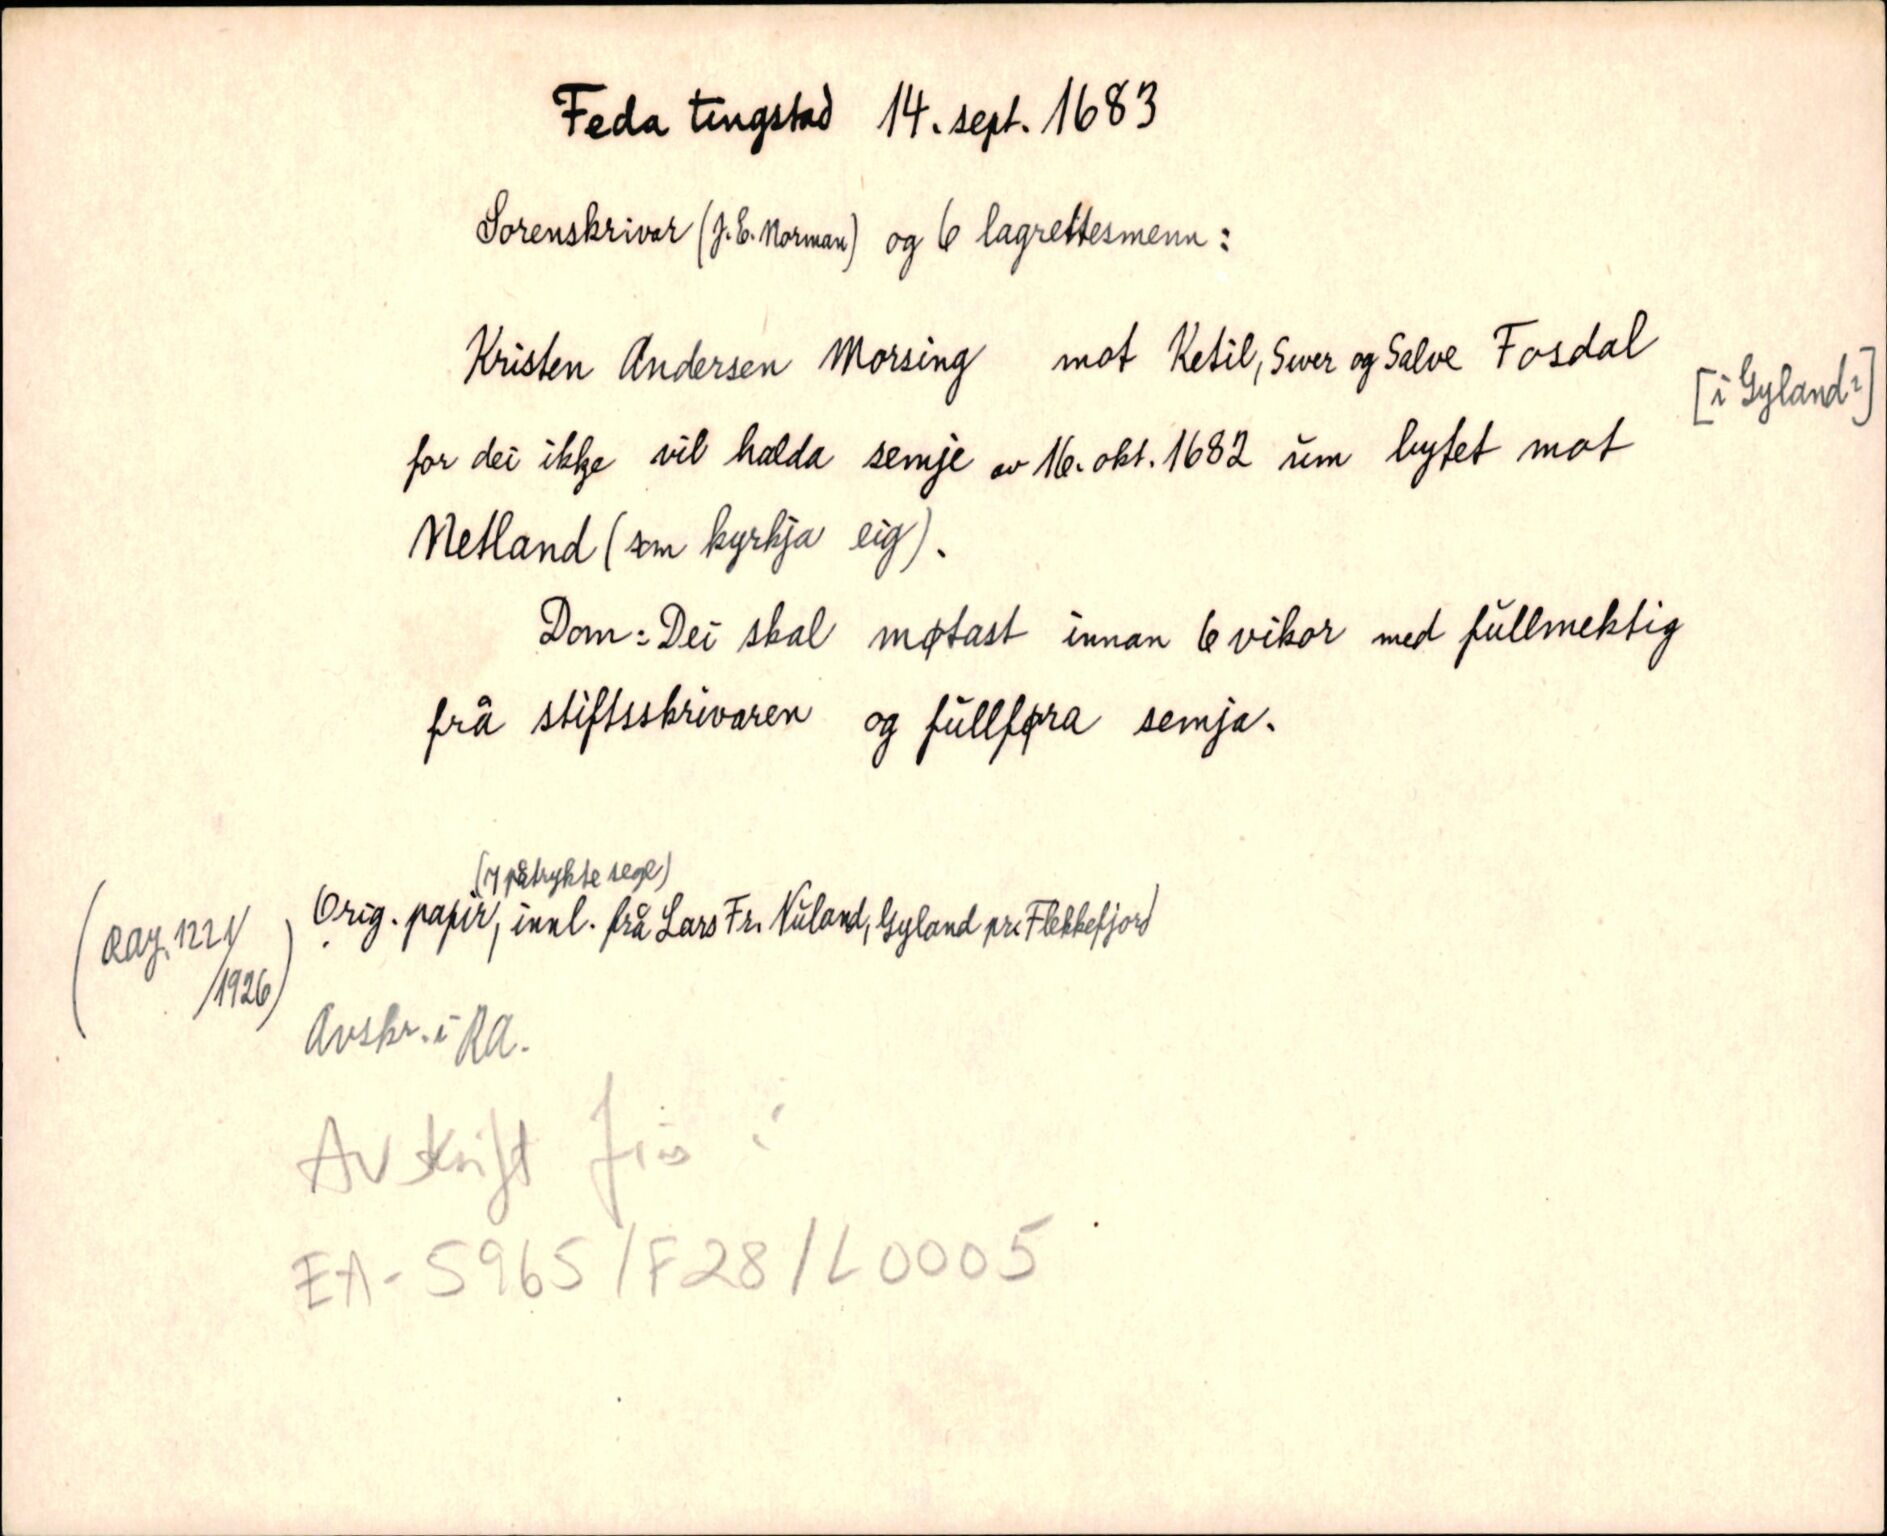 Feda tingstad 14. sept. 1683
Sorenskrivar (J. E. Norman) og 6 lagrettesmenn:
Kristen Andersen Morsing mot Ketil, Siver og Salve Fosdal
[i Gyland?]
for dei ikkje vil halda semje av 16. okt. 1682 um bytet mot
Netland (som kyrkja eig).
Dom: Dei skal møtast innan 6 vikor med fullmektig
frå stiftsskrivaren og fullføra semja.
(7 påtrykte segl)
Orig. papir, innl. frå Lars Fr. Nuland, Gyland pr. Flekkefjord
(RAj. 1221/
/1926)
Avskr. i RA.
Avskrift fins i
EA-5965/F28/L0005